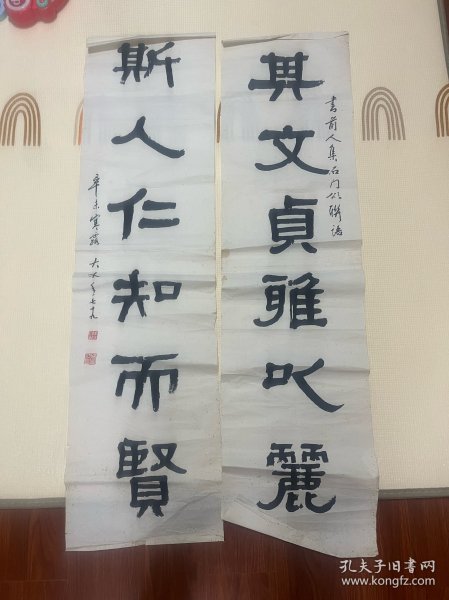 其文貞雅以麗
書前人集石門頌聯語
斯人仁知而賢
辛未寒露
年七十九
孔夫子旧书网
www.kongfz.com